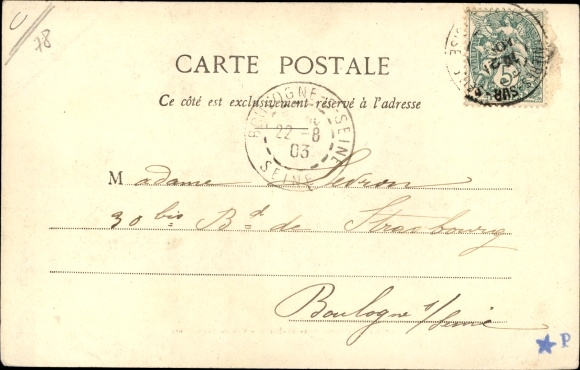 78
CARTE POSTALE
Ce côté est exclusivement réservé à l'adresse
BOULOGNE-S-SEINE
22 -8
03
SEINE
Madame
30 bis Bd de Strasbourg
Boulogne s/Seine
P